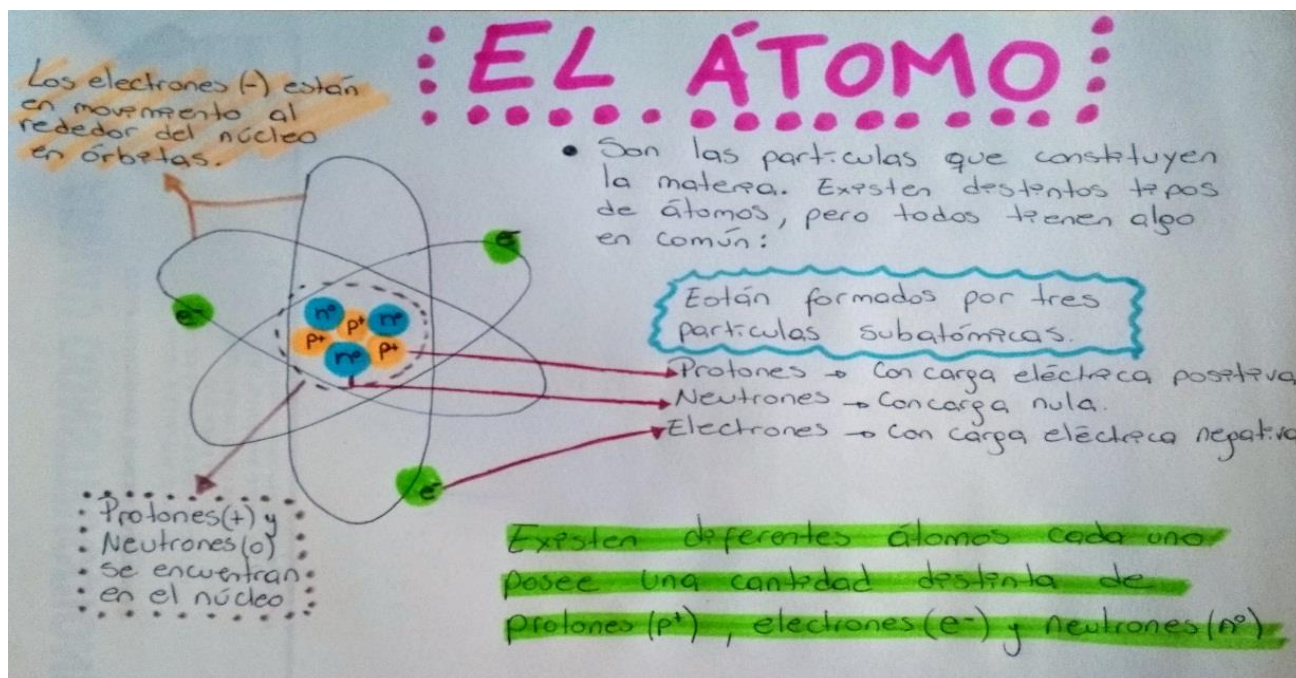 EL ÁTOMO
Los electrones (-) están
en movimiento al
rededor del núcleo
en órbitas.
• Son las partículas que constituyen
la materia. Existen distintos tipos
de átomos, pero todos tienen algo
en común:
Están formados por tres
partículas subatómicas.
Protones → Con carga eléctrica positiva
Neutrones → Con carga nula.
Electrones → Con carga eléctrica negativa
e-
e-
n° p+ n°
p+ n° p+
e-
Protones(+) y
Neutrones(o)
se encuentran
en el núcleo
Existen diferentes átomos cada uno
posee una cantidad distinta de
protones (p+), electrones (e-) y neutrones (n°)